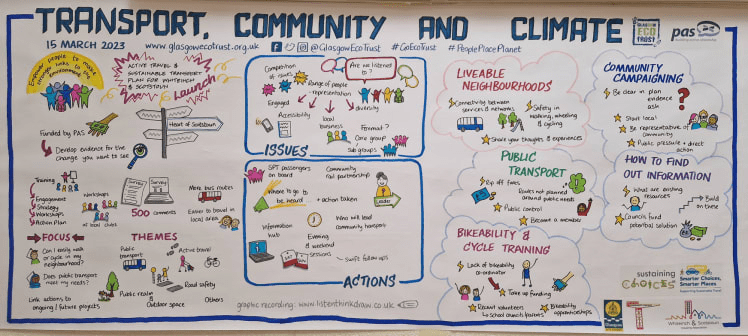 TRANSPORT, COMMUNITY AND CLIMATE
15 MARCH 2023
www.glasgowecotrust.org.uk
@GlasgowEcoTrust
#GoEcoTrust
#PeoplePlacePlanet
GLASGOW
ECO
TRUST
pas
Empower people to make
stronger links to the
environment
ACTIVE TRAVEL &
SUSTAINABLE TRANSPORT
PLAN FOR WHITEINCH
& SCOTSTOUN
Launch
Heart of Scotstoun
Funded by PAS
Develop evidence for the
change you want to see
Training
Engagement
Strategy
Workshops
Action Plan
Workshops
of local clubs
SURVEY
500 comments
More bus routes
Easier to travel in
local area
FOCUS
Can I easily walk
or cycle in my
neighbourhood?
Does public transport
meet my needs?
Link actions to
ongoing / future projects
THEMES
Public
transport
Active travel
Road safety
Public realm &
Outdoor space
Others
Competition
of issues
Are we listened
to?
Range of people
representation
Engaged
diversity
Accessibility
local
business
Format?
Core group
Sub groups
ISSUES
SPT passengers
on board
Community
rail partnership
Where to go to
be heard
+ action taken
Leader
Who will lead
community transport
Information
hub
Evening
& weekend
sessions
SAT
SUN
Swift follow ups
ACTIONS
graphic recording: www.listenthinkdraw.co.uk
LIVEABLE
NEIGHBOURHOODS
Connectivity between
services & networks
Safety in
walking, wheeling
& cycling
Share your thoughts & experiences
PUBLIC
TRANSPORT
Rip off fares
Routes not planned
around public needs
Public control
Become a member
BIKEABILITY &
CYCLE TRAINING
Lack of bikeability
co-ordinator
Take up funding
Recruit volunteers
school count/parents
Bikeability
apprenticeships
COMMUNITY
CAMPAIGNING
Be clear in plan
evidence
ask
Start local
Be representative of
community
Public pressure + direct
action
HOW TO FIND
OUT INFORMATION
What are existing
resources
Build
on these
Councils fund
potential solution
sustaining
CHOICES
Smarter Choices,
Smarter Places
Whiteinch & Scotstoun